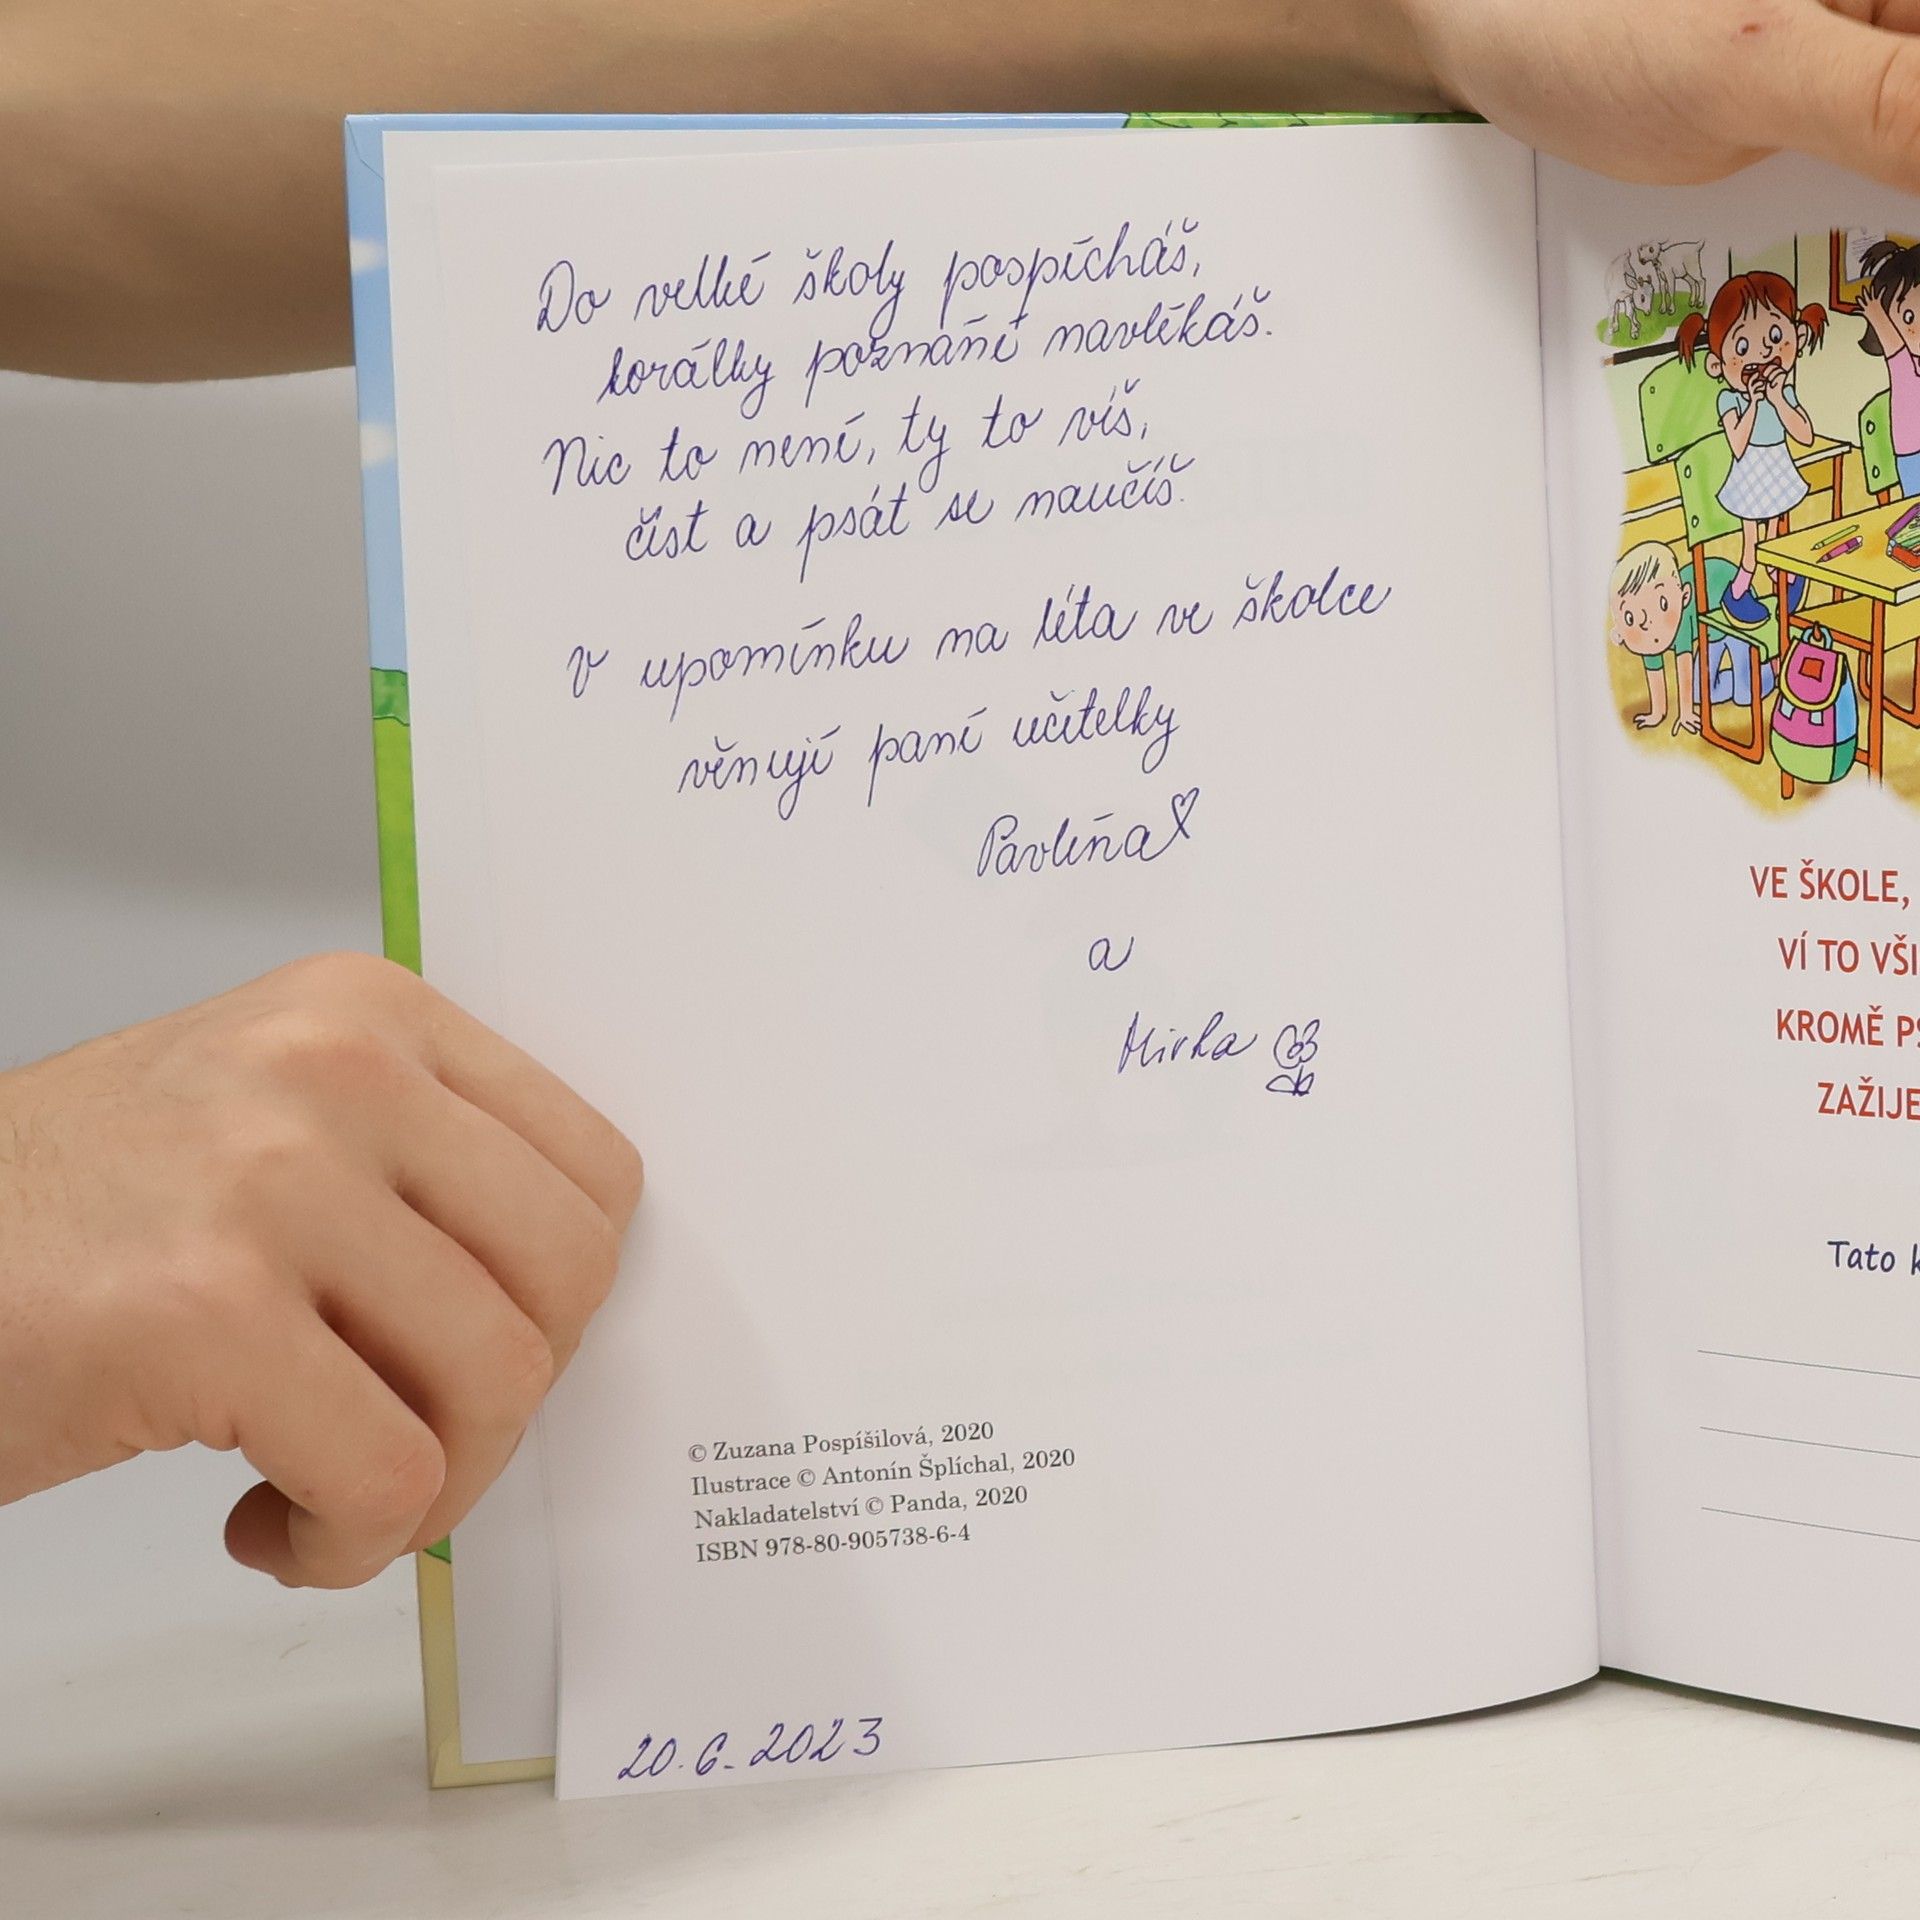 Do velké školy pospícháš,
korálky poznání navlékáš.
Nic to není, ty to víš,
číst a psát se naučíš.
V upomínku na léta ve školce
věnují paní učitelky
Pavlína
a
Mirka
© Zuzana Pospíšilová, 2020
Ilustrace © Antonín Šplíchal, 2020
Nakladatelství © Panda, 2020
ISBN 978-80-905738-6-4
20.6.2023
VE ŠKOLE,
VÍ TO VŠI
KROMĚ PS
ZAŽIJE
Tato k